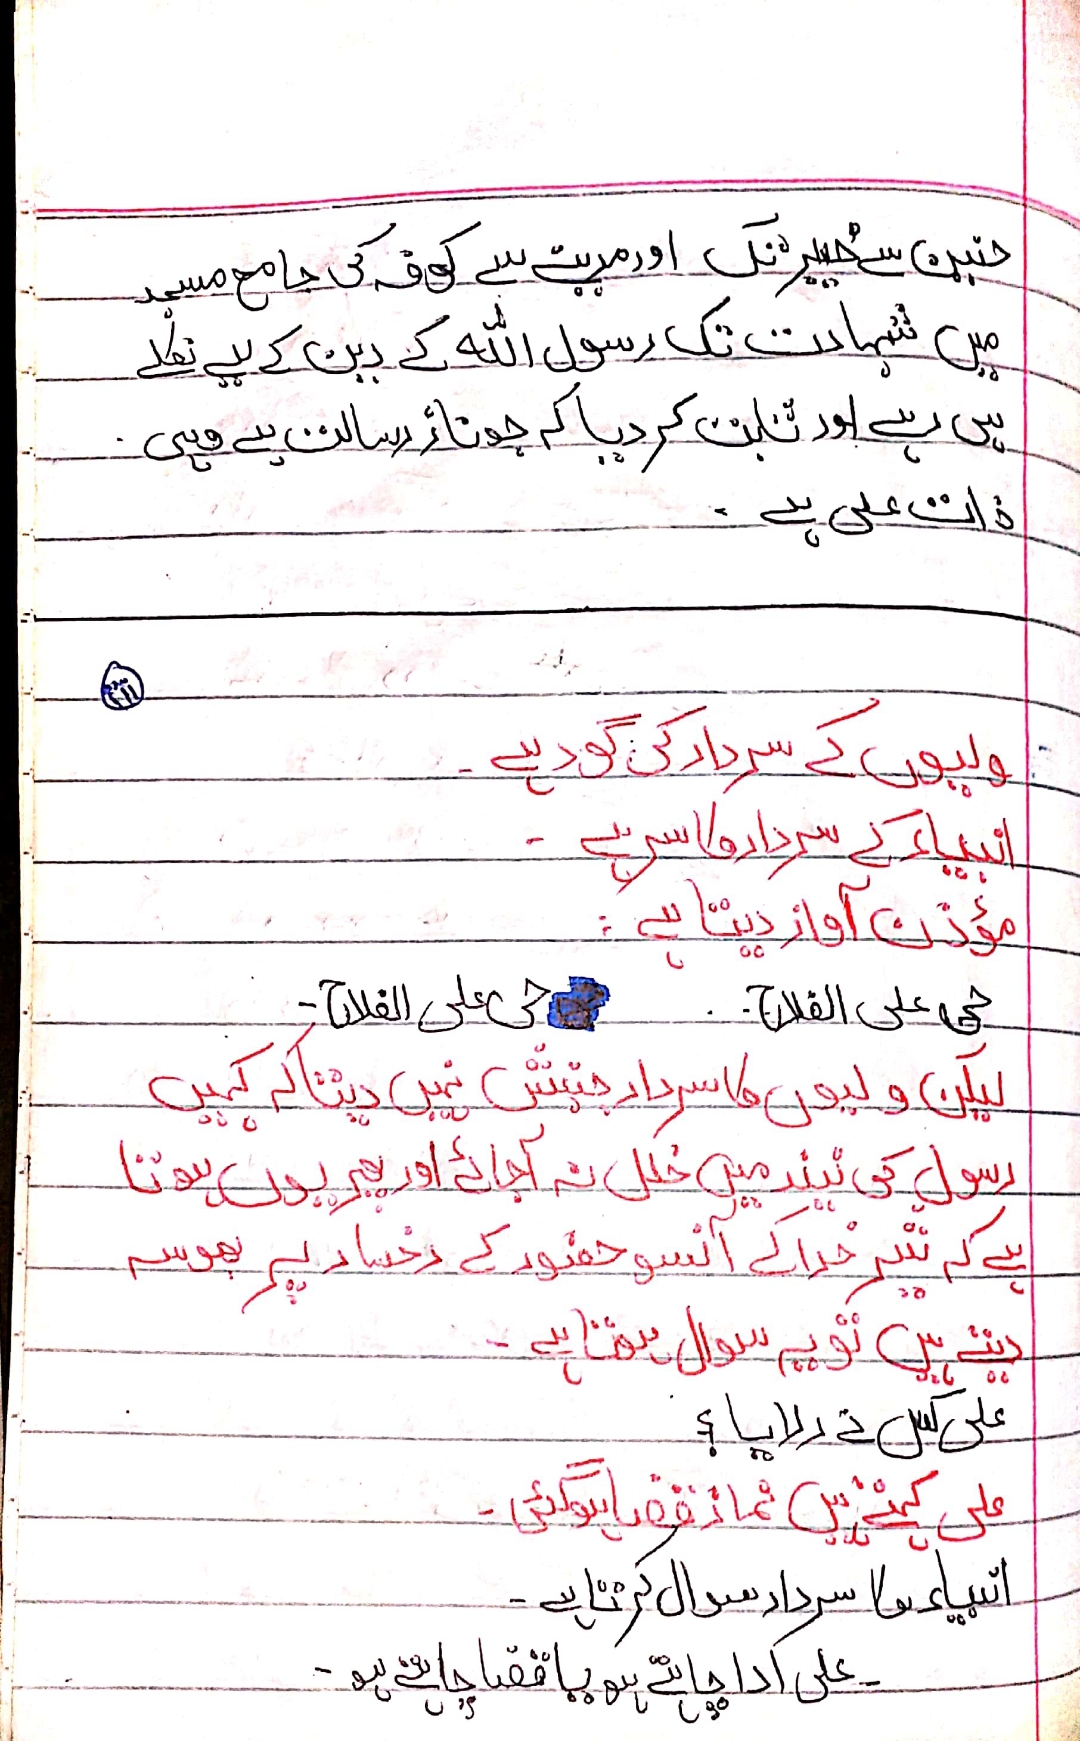 حنین سے خیبر تک اور مدینے سے کوفہ کی جامع مسجد
میں شہادت تک رسول اللہ کے دین کے لیے نکلے
ہیں رہے اور ثابت کر دیا کہ جو ناز رسالت ہے وہی
ذات علی ہے ۔
ولیوں کے سردار کی گود ہے ۔
انبیاء کے سردار کا سر ہے ۔
مؤذن آواز دیتا ہے :
حی علی الفلاح ۔ حی علی الفلاح ۔
لیکن ولیوں کا سردار جنبش نہیں دیتا کہ کہیں
رسول کی نیند میں خلل نہ آجائے اور پھر یوں ہوتا
ہے کہ شیر خدا کے آنسو حضور کے رخسار پر بھوسہ
دیتے ہیں تو یہ سوال ہوتا ہے ۔
علی کس نے رلایا ؟
علی کہتے ہیں نماز قضا ہوگئی ۔
انبیاء کا سردار سوال کرتا ہے ۔
علی ادا چاہتے ہو یا قضا چاہتے ہو ۔